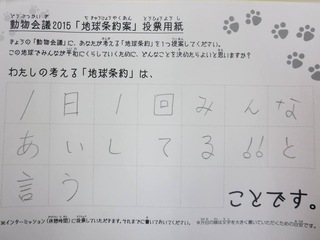 動物会議2015「地球条約案」投票用紙
きょうの「動物会議」に、あなたが考える「地球条約」を1つ提案してください。
この地球でみんなが平和にくらしていくために、どんなことを決めたらよいと思いますか?
わたしの考える「地球条約」は、
1日1回みんな
あいしてる!!と
言う
ことです。